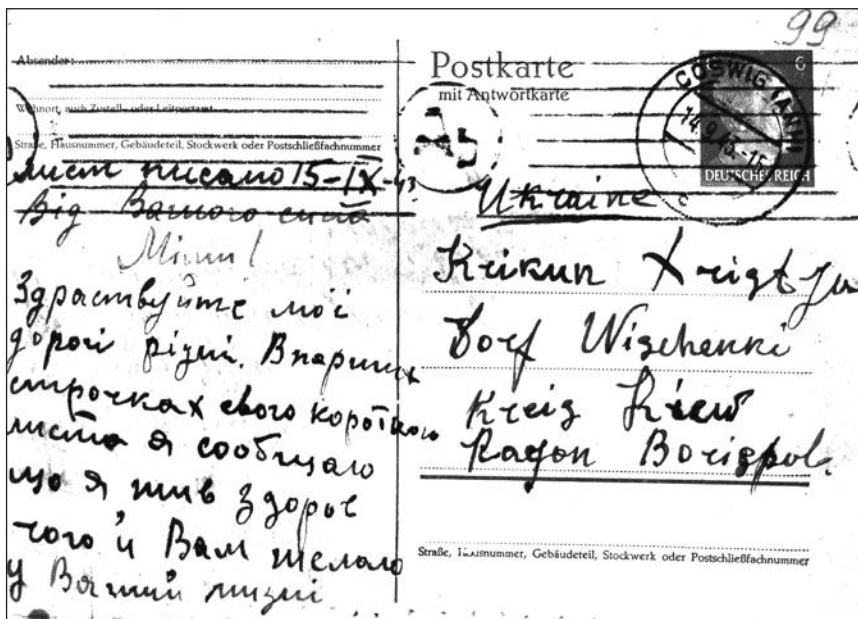 99
Absender:
Wohnort, auch Zustell- oder Leitpostamt
Straße, Hausnummer, Gebäudeteil, Stockwerk oder Postschließfachnummer
лист писано 15-IX-43
Від Вашого сина
Міші
Здраствуйте мої
дорогі рідні. В
строчках свого короткого
листа я сообщаю
що я жив здоров
чого й Вам желаю
у Вашій жизні
Postkarte
mit Antwortkarte
6
COSWIG (ANH)
DEUTSCHES REICH
Ab
Ukraine
Krikun
Dorf Wischenki
Kreis Kiew
Rayon Borispol.
Straße, Hausnummer, Gebäudeteil, Stockwerk oder Postschließfachnummer